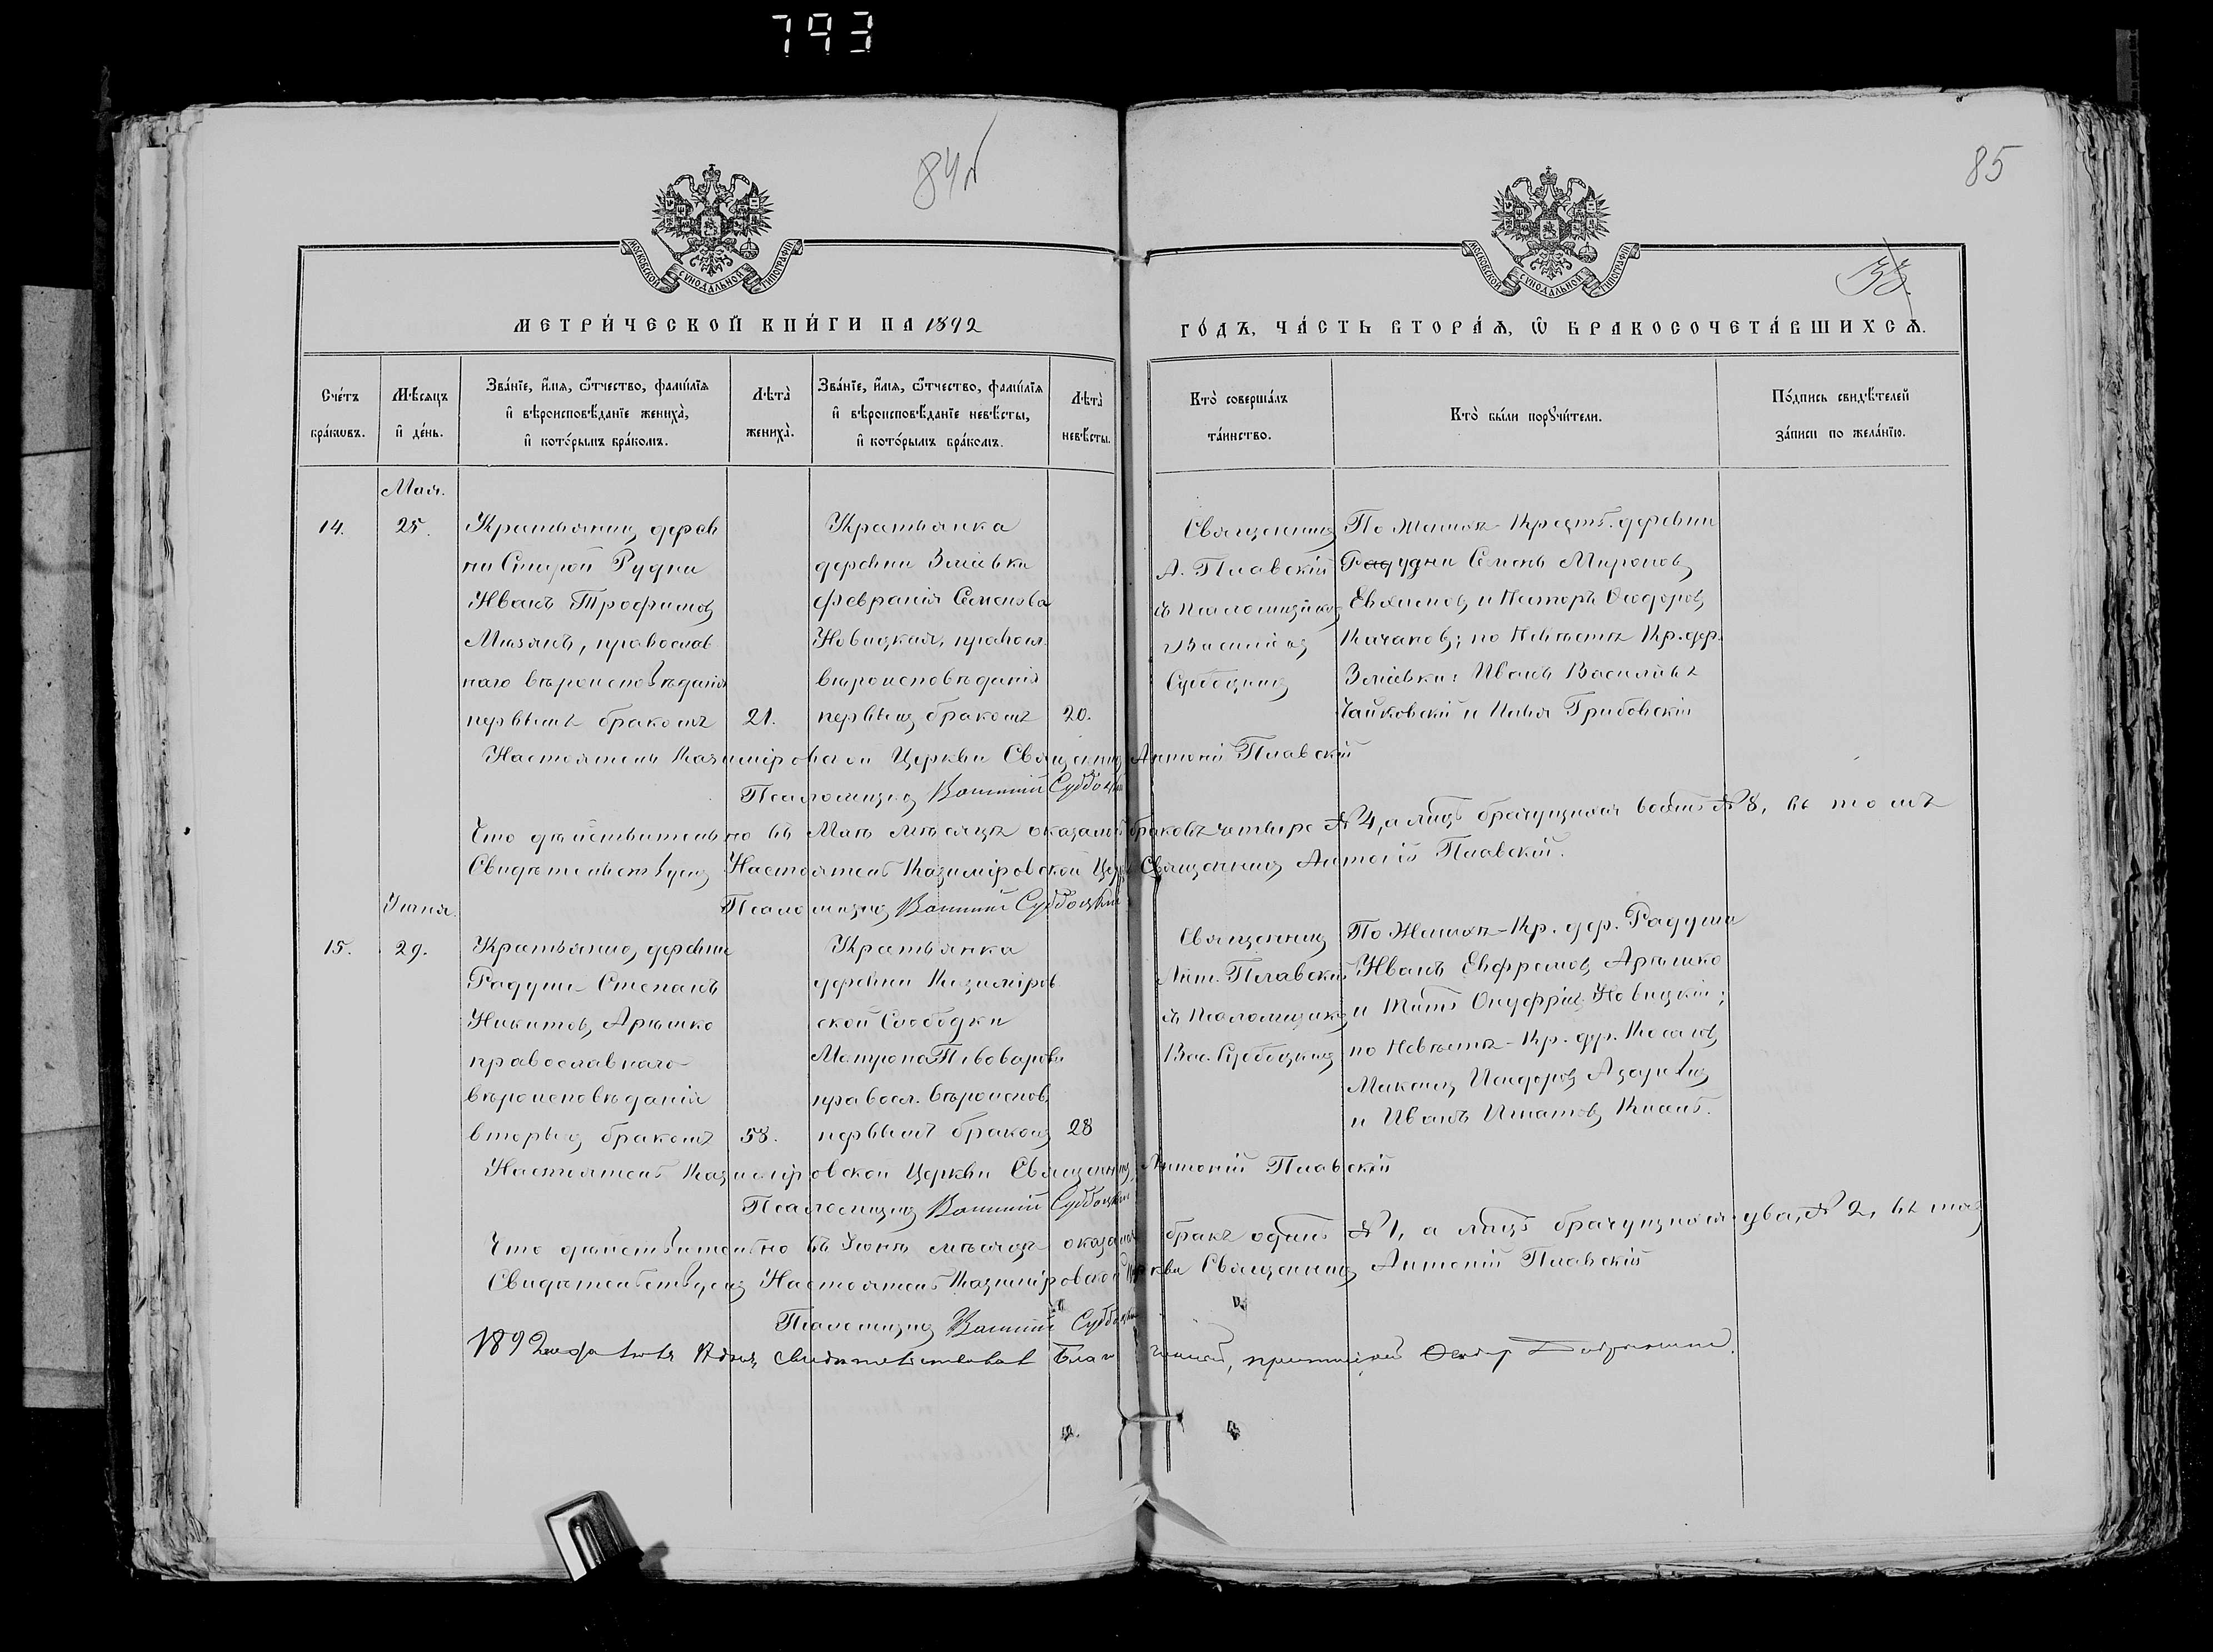 793
84
85
МОСКОВСКОЙ СѴНОДАЛЬНОЙ ТИПОГРАФІИ
МОСКОВСКОЙ СѴНОДАЛЬНОЙ ТИПОГРАФІИ
МЕТРИ́ЧЕСКОЙ КНИ́ГИ НА 1892
ГО́ДЪ, ЧА́СТЬ ВТОРА́Ѧ, Ѽ БРАКОСОЧЕТА́ВШИХСѦ.
Сче́тъ бра́кѡвъ.
Мѣ́сяцъ и҆ де́нь.
Зва́нїе, и҆́мя, ѻ҆́тчество, фами́лїя и҆ вѣроисповѣ́данїе жениха̀, и҆ кото́рымъ бра́комъ.
Лѣта̀ жениха̀.
Зва́нїе, и҆́мя, ѻ҆́тчество, фами́лїя и҆ вѣроисповѣ́данїе невѣ́сты, и҆ кото́рымъ бра́комъ.
Лѣта̀ невѣ́сты.
Кто̀ соверша́лъ та́инство.
Кто̀ бы́ли порꙋчи́тели.
По́дпись свидѣ́телей за́писи по жела́нїю.
Мая.
14.
25.
Крестьянинъ дерев
ни Старой Рудни
Иванъ Трофимовъ
Мизянъ, православ
наго вѣроисповѣданія
первымъ бракомъ
21.
Крестьянка
деревни Зміевки
Февранія Семенова
Новицкая, правосл.
вѣроисповѣданія
первымъ бракомъ
20.
Священникъ
А. Плавскій
съ Псаломщикомъ
Василіемъ
Суббоцкимъ
По Женихѣ - Крест. деревни
Радудни Семенъ Мироновъ
Евхимовъ и Несторъ Ѳеодоровъ
Качановъ; по Невѣстѣ Кр. дер.
Зміевки: Иванъ Васильевъ
Чайковскій и Илья Грибовскій
Настоятель Казимировской Церкви Священникъ Антоній Плавскій
Псаломщикъ Василій Суббоцкій
Что дѣйствительно въ Маѣ мѣсяцѣ оказалось браковъ четыре № 4, а лицъ брачущихся восемь № 8, въ томъ
Свидѣтельствуемъ Настоятель Казимировской Церк. Священникъ Антоній Плавскій.
Псаломщикъ Василій Суббоцкій
Іюня.
15.
29.
Крестьянинъ деревни
Радуши Степанъ
Никитовъ Арышко
православнаго
вѣроисповѣданія
вторымъ бракомъ
58.
Крестьянка
деревни Казиміров
ской Слободки
Матрона Пивоварова
правосл. вѣроисповѣд.
первымъ бракомъ
28
Священникъ
Ант. Плавскій
съ Псаломщикомъ
Вас. Суббоцкимъ
По Женихѣ - Кр. дер. Радуши
Иванъ Евфремовъ Арышко
и Титъ Онуфріевъ Новицкій;
по Невѣстѣ - Кр. дер.
Максимъ Исидоровъ
и Иванъ Игнатовъ
Настоятель Казимировской Церкви Священникъ Антоній Плавскій
Псаломщикъ Василій Суббоцкій
Что дѣйствительно въ Іюнѣ мѣсяцѣ оказался бракъ одинъ № 1, а лицъ брачущихся два, № 2, въ томъ
Свидѣтельствуемъ Настоятель Казимировской Церкви Священникъ Антоній Плавскій
Псаломщикъ Василій Суббоцкій
1892 года дня, свидѣтельствовалъ Благочинный,